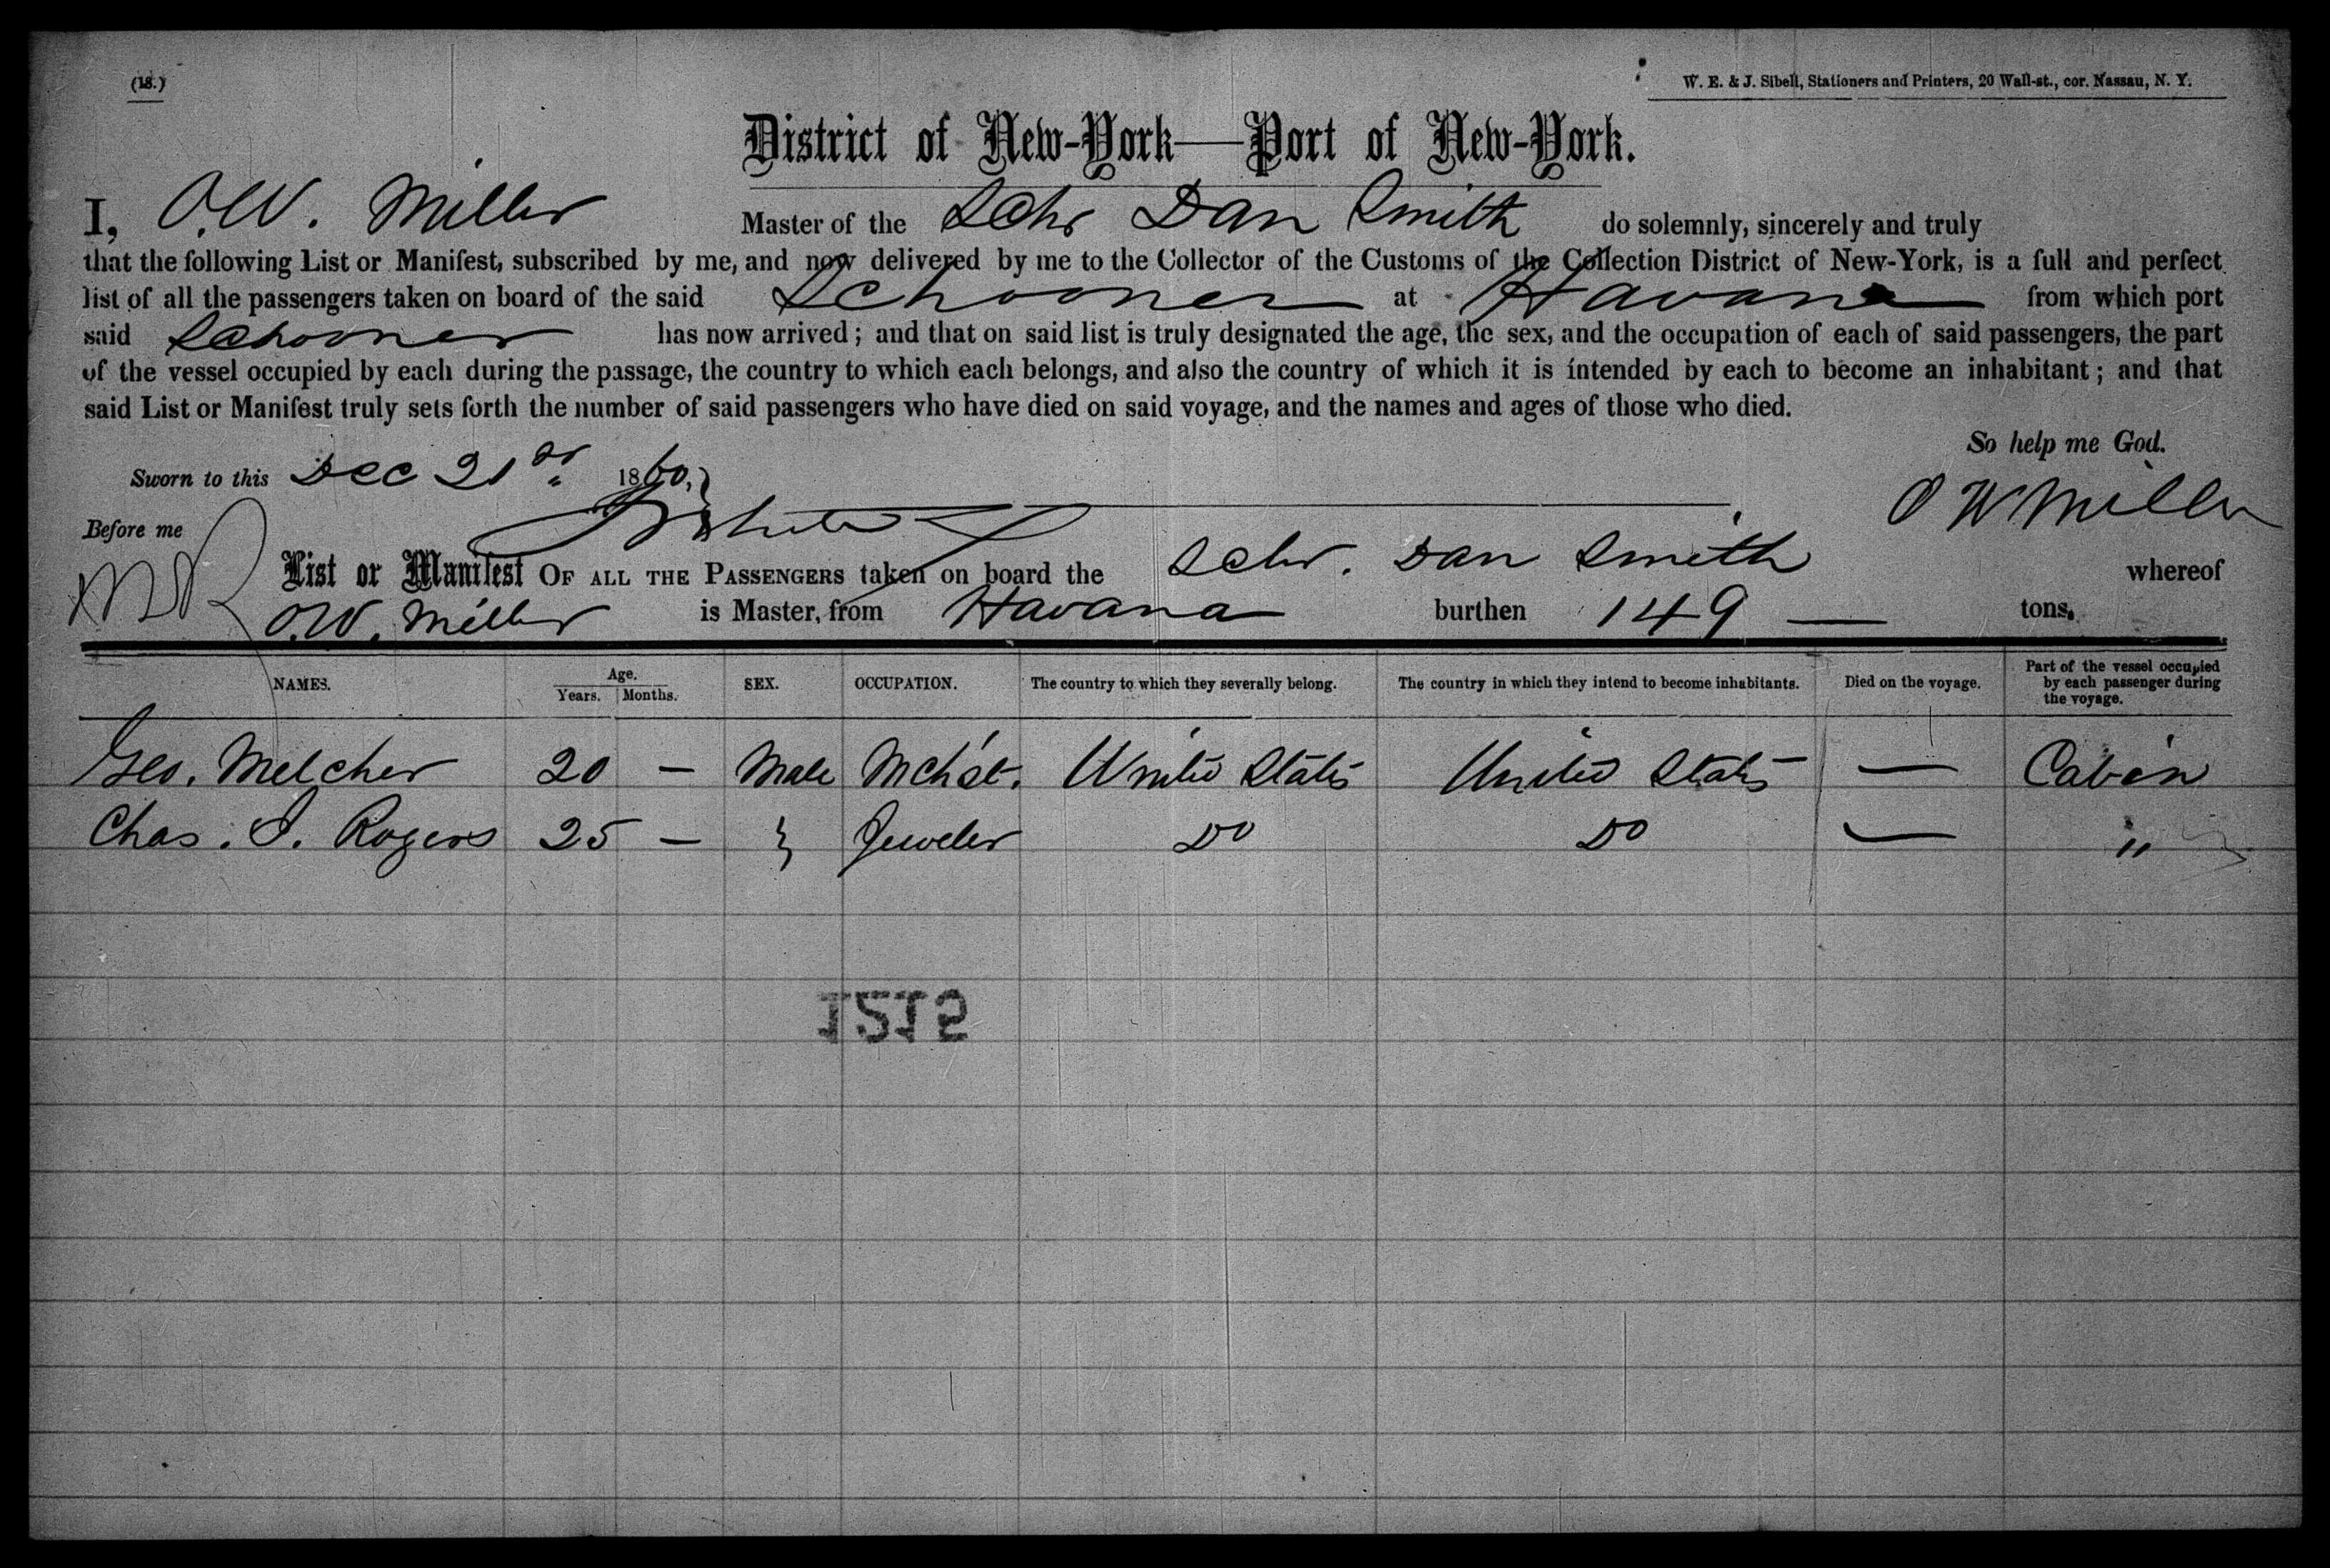 (18.)
W. E. & J. Sibell, Stationers and Printers, 20 Wall-st., cor. Nassau, N. Y.
District of New-York—Port of New-York.
I, O.W. Miller Master of the Schr Dan Smith do solemnly, sincerely and truly
that the following List or Manifest, subscribed by me, and now delivered by me to the Collector of the Customs of the Collection District of New-York, is a full and perfect
list of all the passengers taken on board of the said Schooner at Havana from which port
said Schooner has now arrived; and that on said list is truly designated the age, the sex, and the occupation of each of said passengers, the part
of the vessel occupied by each during the passage, the country to which each belongs, and also the country of which it is intended by each to become an inhabitant; and that
said List or Manifest truly sets forth the number of said passengers who have died on said voyage, and the names and ages of those who died.
So help me God.
Sworn to this Dec 21st 1860,
O W Miller
Before me
List or Manifest OF ALL THE PASSENGERS taken on board the Schr. Dan Smith whereof
O.W. Miller is Master, from Havana burthen 149 — tons.
NAMES. Age. Years. Months. SEX. OCCUPATION. The country to which they severally belong. The country in which they intend to become inhabitants. Died on the voyage. Part of the vessel occupied by each passenger during the voyage.
Geo. Melcher 20 — Male Mch't. United States United States — Cabin
Chas. I. Rogers 25 — } Jeweler Do Do — "
1212